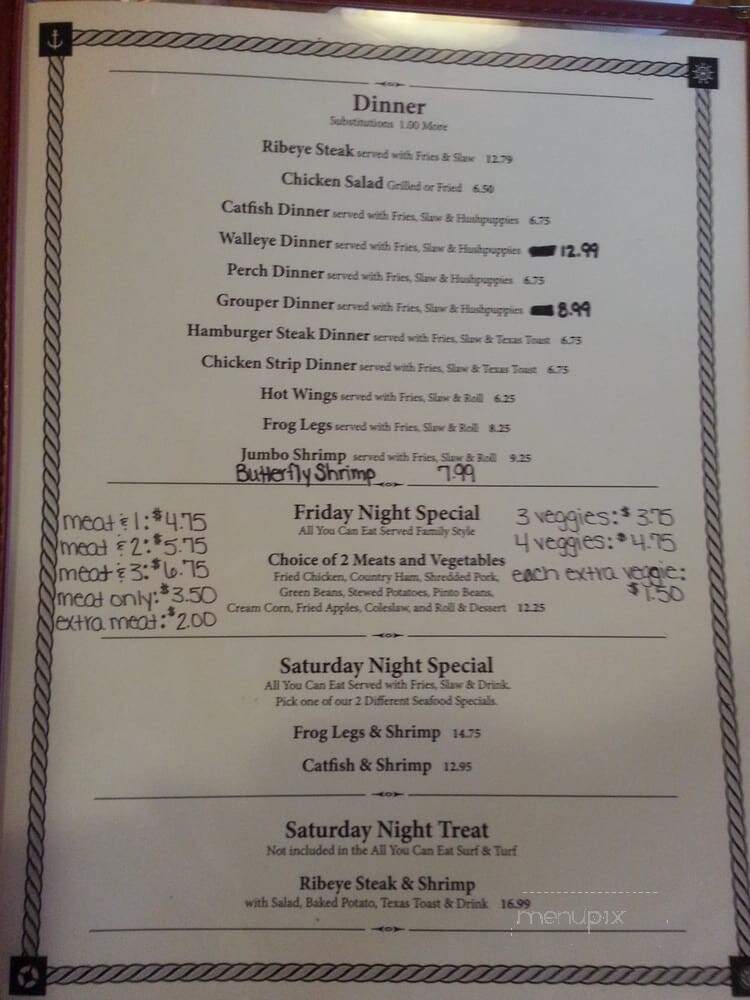 Dinner
Substitutions 1.00 More
Ribeye Steak served with Fries & Slaw 12.79
Chicken Salad Grilled or Fried 6.50
Catfish Dinner served with Fries, Slaw & Hushpuppies 6.75
Walleye Dinner served with Fries, Slaw & Hushpuppies 12.99
Perch Dinner served with Fries, Slaw & Hushpuppies 6.75
Grouper Dinner served with Fries, Slaw & Hushpuppies 8.99
Hamburger Steak Dinner served with Fries, Slaw & Texas Toast 6.75
Chicken Strip Dinner served with Fries, Slaw & Texas Toast 6.75
Hot Wings served with Fries, Slaw & Roll 6.25
Frog Legs served with Fries, Slaw & Roll 8.25
Jumbo Shrimp served with Fries, Slaw & Roll 9.25
Butterfly Shrimp 7.99
meat & 1: $4.75
meat & 2: $5.75
meat & 3: $6.75
meat only: $3.50
extra meat: $2.00
Friday Night Special
All You Can Eat Served Family Style
Choice of 2 Meats and Vegetables
Fried Chicken, Country Ham, Shredded Pork,
Green Beans, Stewed Potatoes, Pinto Beans,
Cream Corn, Fried Apples, Coleslaw, and Roll & Dessert 12.25
3 veggies: $3.75
4 veggies: $4.75
each extra veggie:
$1.50
Saturday Night Special
All You Can Eat Served with Fries, Slaw & Drink.
Pick one of our 2 Different Seafood Specials.
Frog Legs & Shrimp 14.75
Catfish & Shrimp 12.95
Saturday Night Treat
Not included in the All You Can Eat Surf & Turf
Ribeye Steak & Shrimp
with Salad, Baked Potato, Texas Toast & Drink 16.99
menupix